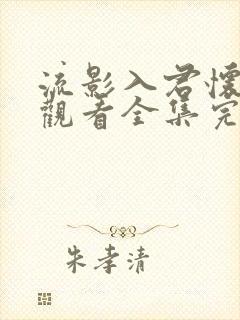 流影入君懷
觀看全集完
朱孝清